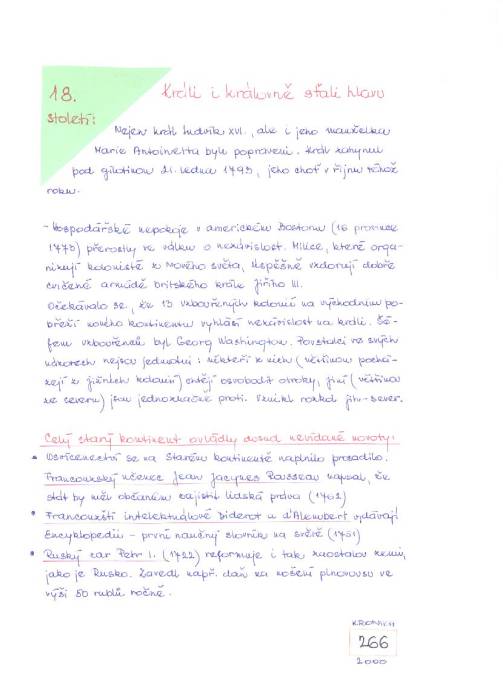 18.
století:
Králi i královně sťali hlavu
Nejen král Ludvík XVI., ale i jeho manželka
Marie Antoinetta byli popraveni. Král zahynul
pod gilotinou 21. ledna 1793, jeho choť v říjnu téhož
roku.
- Hospodářské nepokoje v americkém Bostonu (16 prosince
1773) přerostly ve válku o nezávislost. Milice, které orga-
nizují kolonisté z Nového světa, úspěšně vzdorují dobře
cvičené armádě britského krále Jiřího III.
Očekávalo se, že 13 vzbouřených kolonií na východním po-
břeží nového kontinentu vyhlásí nezávislost na králi. Šé-
fem vzbouřenců byl Georg Washington. Povstalci ve svých
názorech nejsou jednotní: někteří z nich (většinou pochá-
zejí z jižních kolonií) chtějí osvobodit otroky, jiní (většinou
ze severu) jsou jednoznačně proti. Vznikl rozkol jih-sever.
Celý starý kontinent ovládly dosud nevídané novoty:
Osvícenectví se na Starém kontinentě naplnilo prosadilo.
Francouzský učenec Jean Jacques Rousseau napsal, že
stát by měl občanům zajistit lidská práva (1762)
Francouzští intelektuálové Diderot a d'Alembert vydávají
Encyklopedii - první naučný slovník na světě (1751)
Ruský car Petr I. (1722) reformuje i tak zaostalou zemi,
jako je Rusko. Zavedl např. daň za nošení plnovousu ve
výši 50 rublů ročně.
266
2000